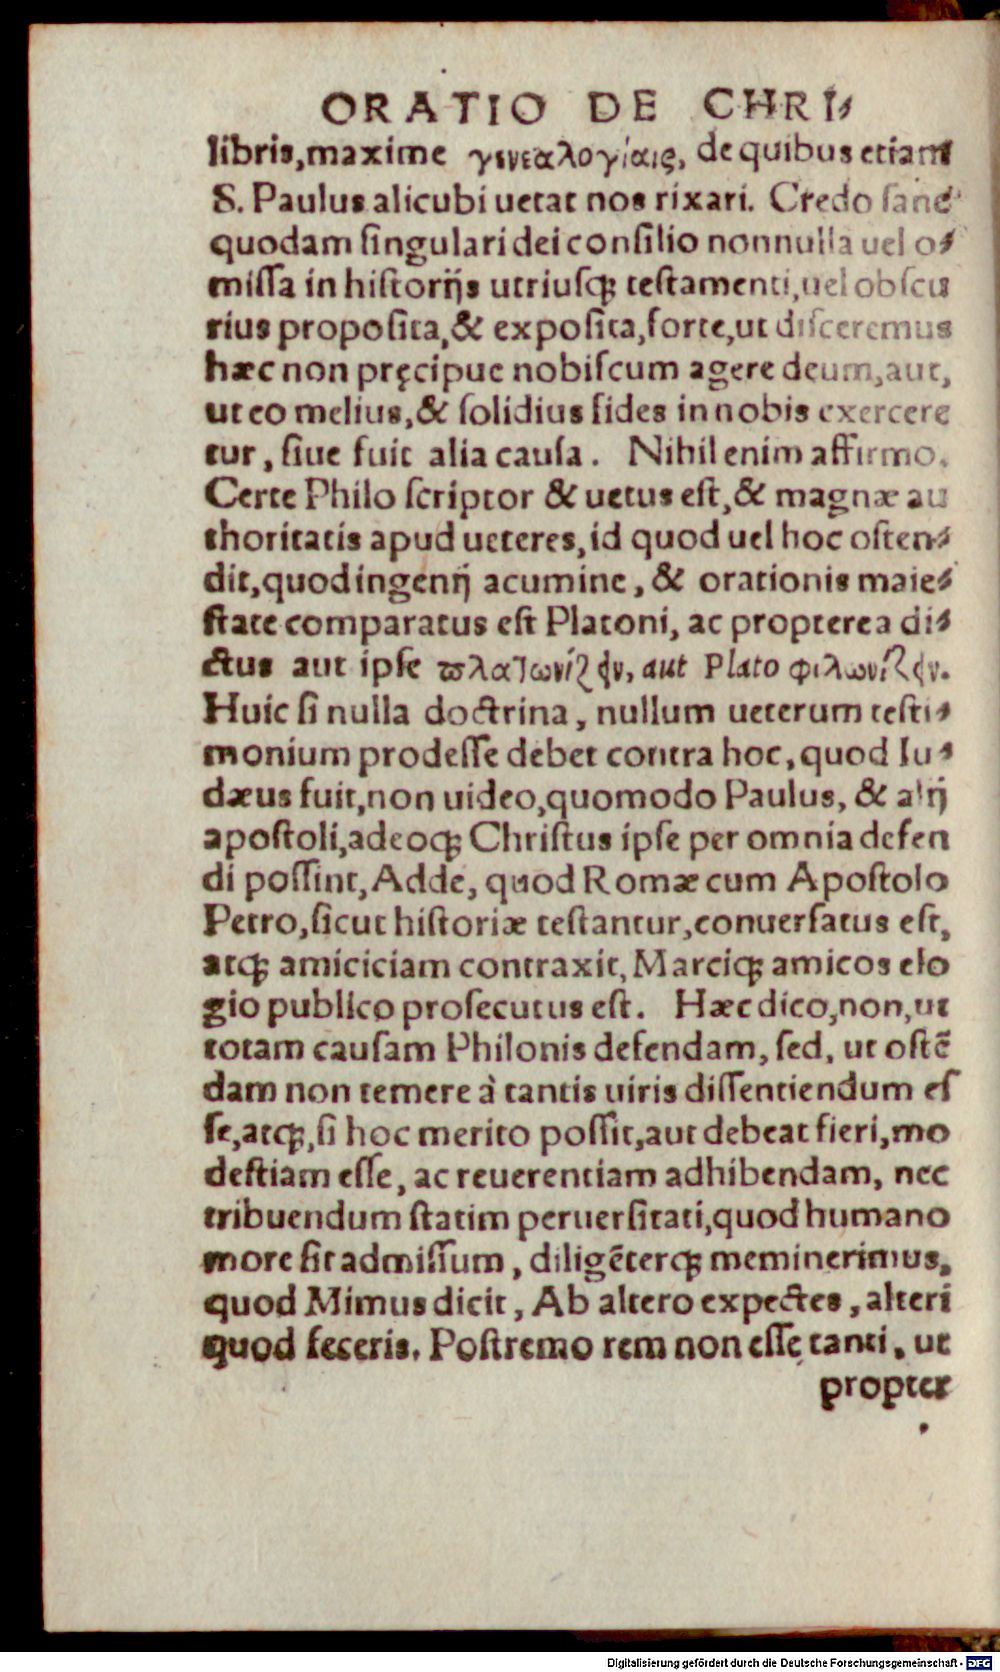 ORATIO DE CHRI⸗
libris, maxime γενεαλογίαις, de quibus etiam
S. Paulus alicubi uetat nos rixari. Credo sane
quodam singulari dei consilio nonnulla uel o⸗
missa in historijs utriusqꝫ testamenti, uel obscu
rius proposita, & exposita, forte, ut disceremus
hæc non pręcipue nobiscum agere deum, aut,
ut eo melius, & solidius fides in nobis exercere
tur, siue fuit alia causa. Nihil enim affirmo.
Certe Philo scriptor & uetus est, & magnæ au
thoritatis apud ueteres, id quod uel hoc osten⸗
dit, quod ingenij acumine, & orationis maie⸗
state comparatus est Platoni, ac propterea di⸗
ctus aut ipse πλατωνίζειν, aut Plato φιλωνίζειν.
Huic si nulla doctrina, nullum ueterum testi⸗
monium prodesse debet contra hoc, quod Iu⸗
dæus fuit, non uideo, quomodo Paulus, & alij
apostoli, adeoqꝫ Christus ipse per omnia defen
di possint, Adde, quod Romæ cum Apostolo
Petro, sicut historiæ testantur, conuersatus est,
atqꝫ amiciciam contraxit, Marciqꝫ amicos elo
gio publico prosecutus est. Hæc dico, non, ut
totam causam Philonis defendam, sed, ut ostē
dam non temere à tantis uiris dissentiendum es
se, atqꝫ, si hoc merito possit, aut debeat fieri, mo
destiam esse, ac reuerentiam adhibendam, nec
tribuendum statim peruersitati, quod humano
more sit admissum, diligēterqꝫ meminerimus,
quod Mimus dicit, Ab altero expectes, alteri
quod feceris. Postremo rem non esse tanti, ut
propter
Digitalisierung gefördert durch die Deutsche Forschungsgemeinschaft - DFG